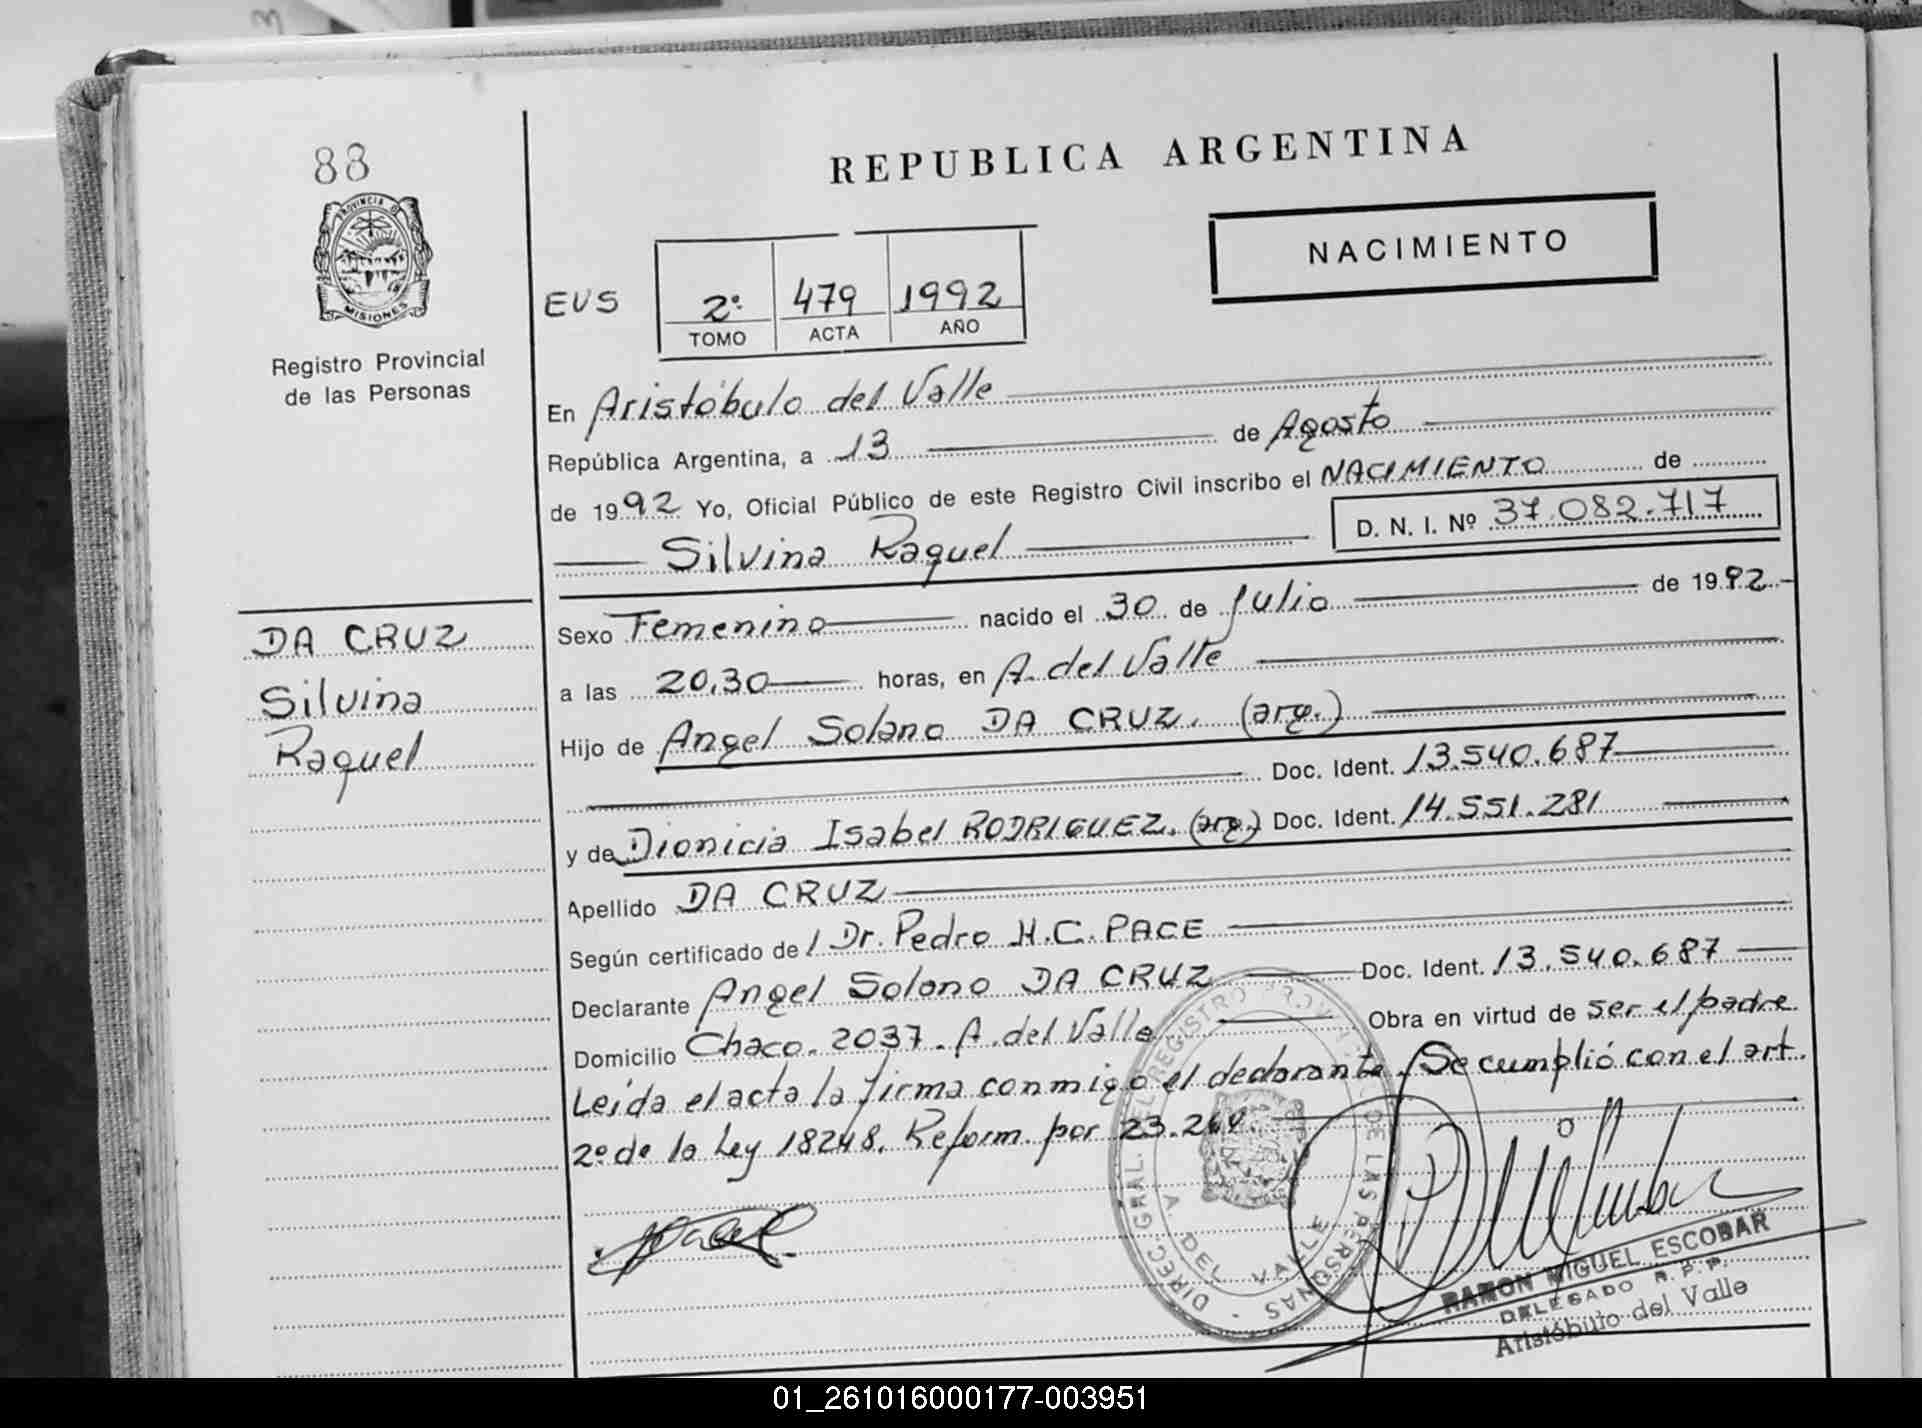 88
PROVINCIA DE
MISIONES
Registro Provincial
de las Personas
DA CRUZ
Silvina
Raquel
REPUBLICA ARGENTINA
NACIMIENTO
EVS
2º 479 1992
TOMO ACTA AÑO
En Aristóbulo del Valle
República Argentina, a 13 de Agosto
de 1992 Yo, Oficial Público de este Registro Civil inscribo el NACIMIENTO de
Silvina Raquel D. N. I. Nº 37.082.717
Sexo Femenino nacido el 30 de Julio de 1992
a las 20,30 horas, en A. del Valle
Hijo de Angel Solano DA CRUZ. (arg.)
Doc. Ident. 13.540.687
y de Dionicia Isabel RODRIGUEZ. (arg.) Doc. Ident. 14.551.281
Apellido DA CRUZ
Según certificado de / Dr. Pedro H.C. PACE
Declarante Angel Solano DA CRUZ Doc. Ident. 13.540.687
Domicilio Chaco. 2037. A. del Valle Obra en virtud de ser el padre.
Leída el acta la firma conmigo el declarante. Se cumplió con el art.
2º de la Ley 18248. Reform. por 23.264.
DIREC. GRAL. DEL REGISTRO PROVINCIAL DE LAS PERSONAS -
A DEL VALLE
RAMON MIGUEL ESCOBAR
DELEGADO R.P.P.
Aristóbulo del Valle
01_261016000177-003951